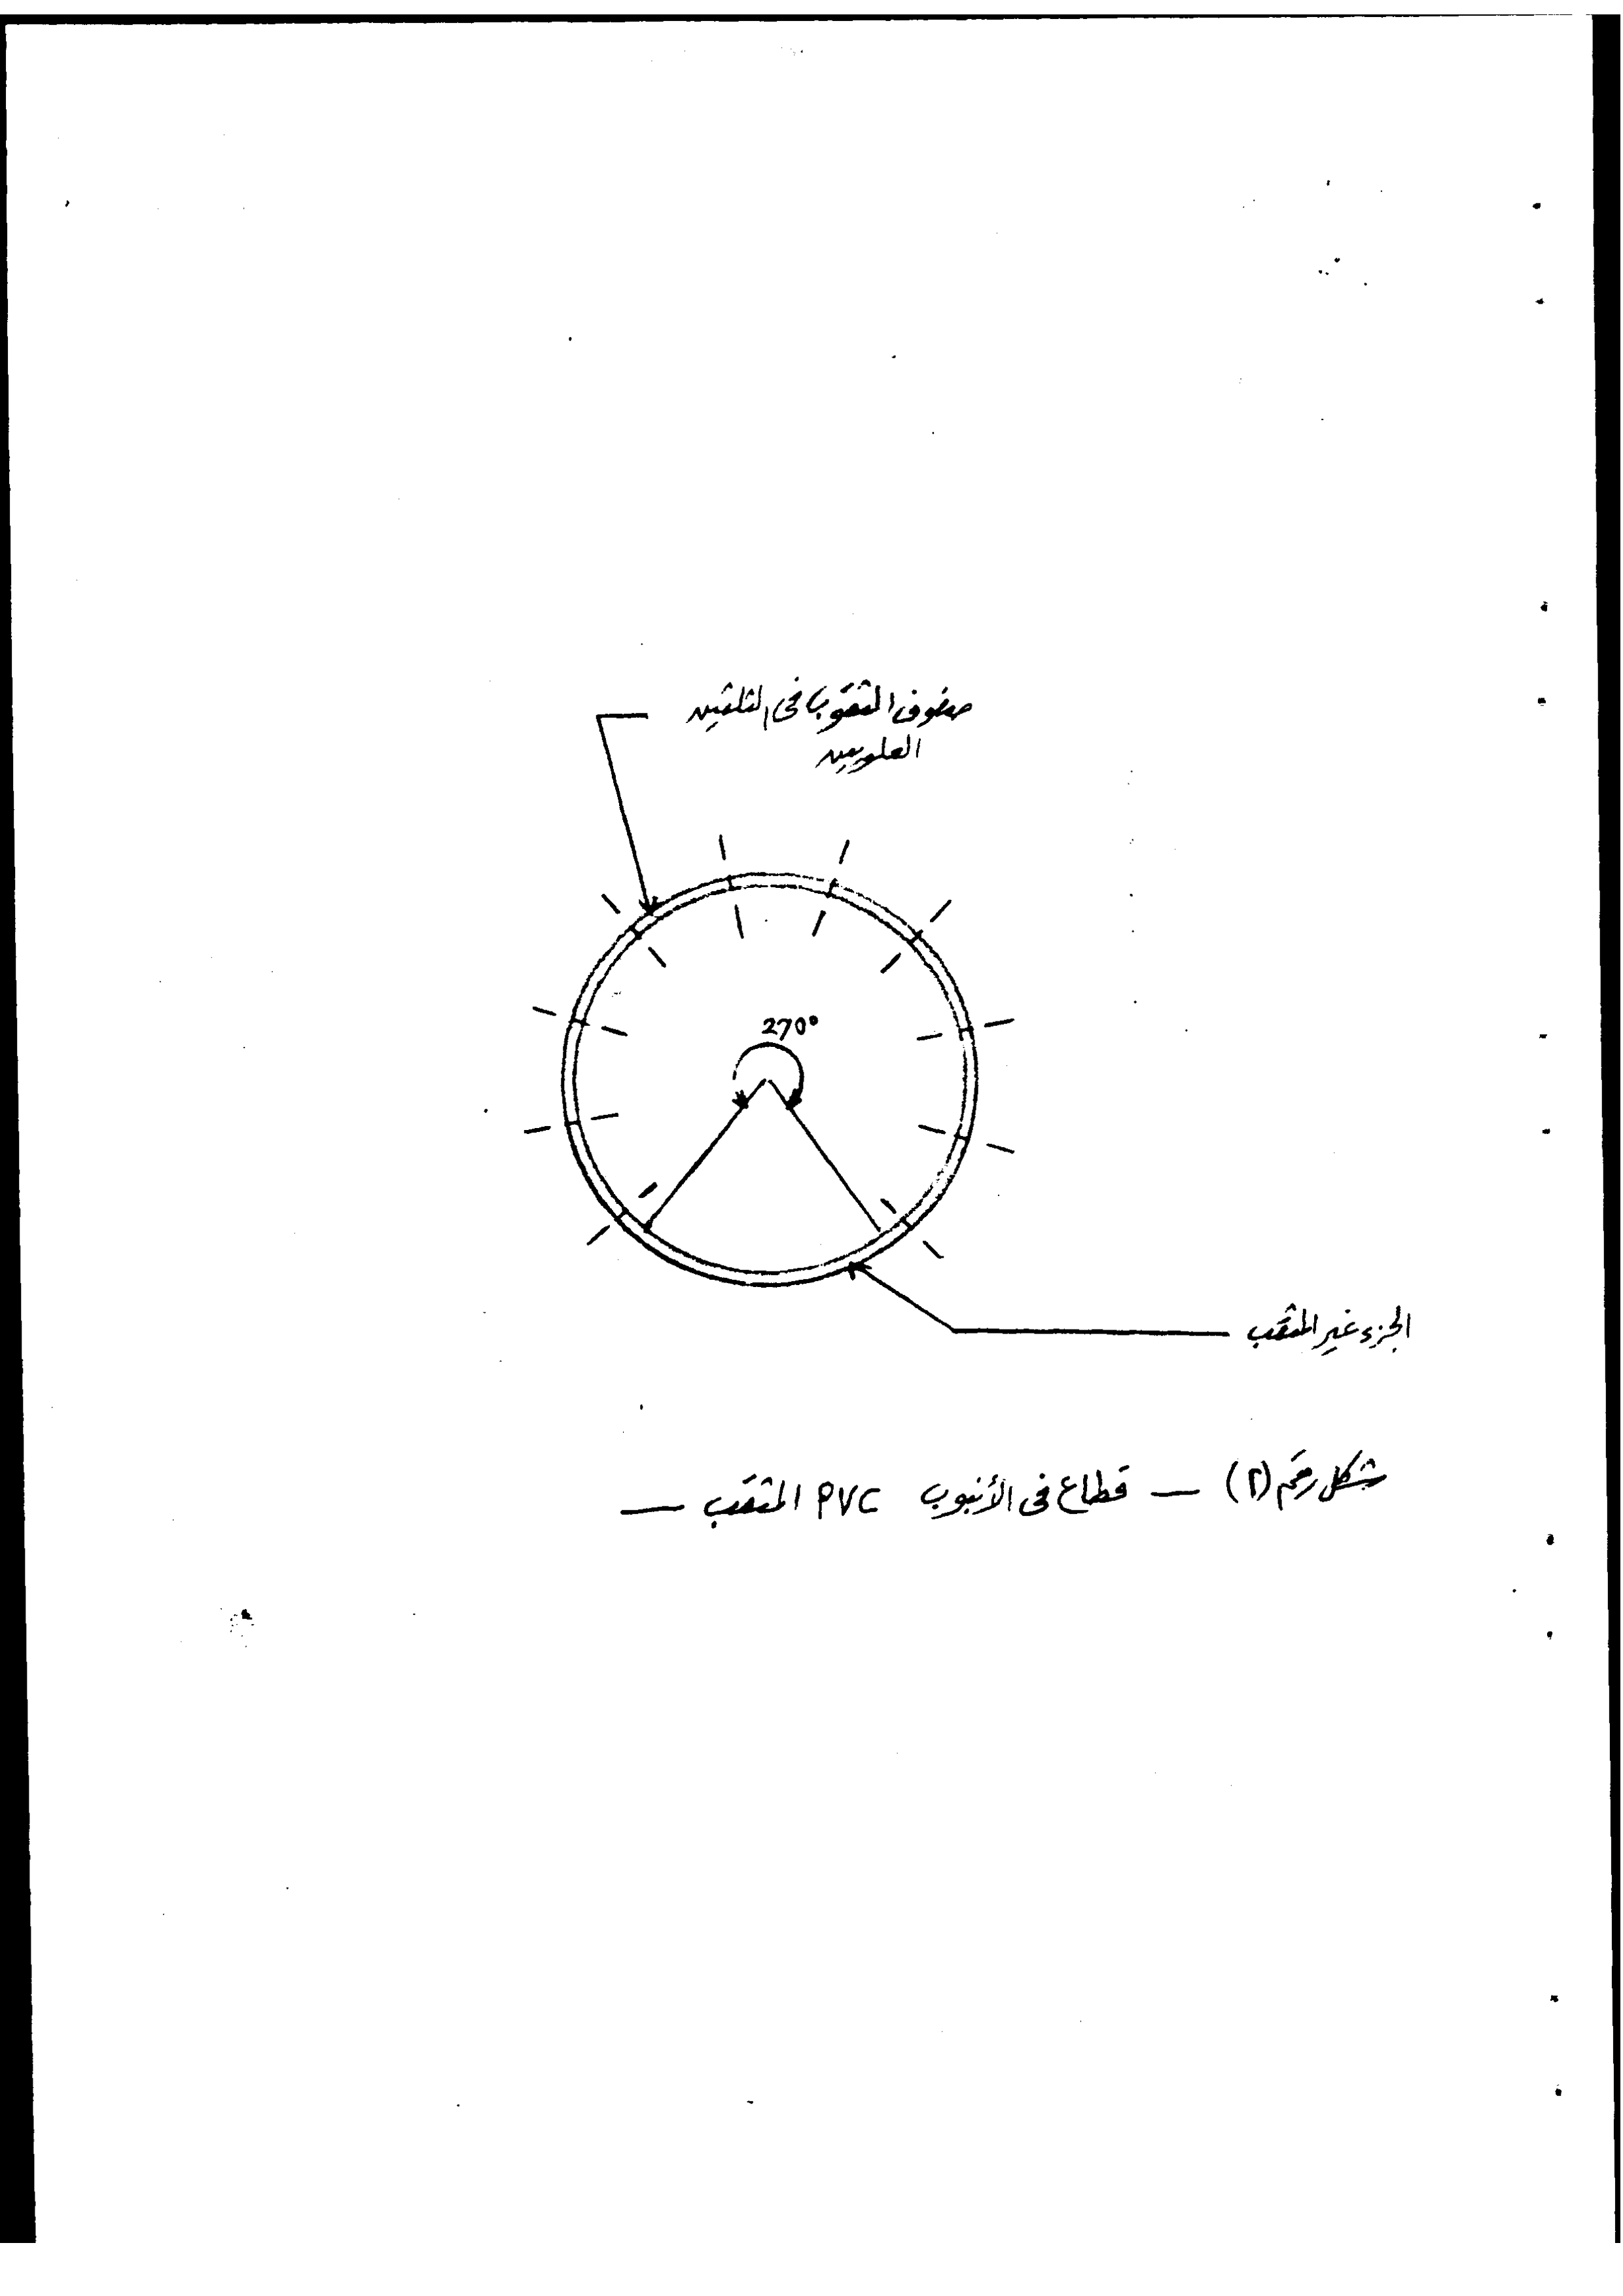 صفوف الثقوب في الثلثين
العلويين
270°
الجزء غير المثقب
شكل رقم (٢) — قطاع في الأنبوب PVC المثقب —